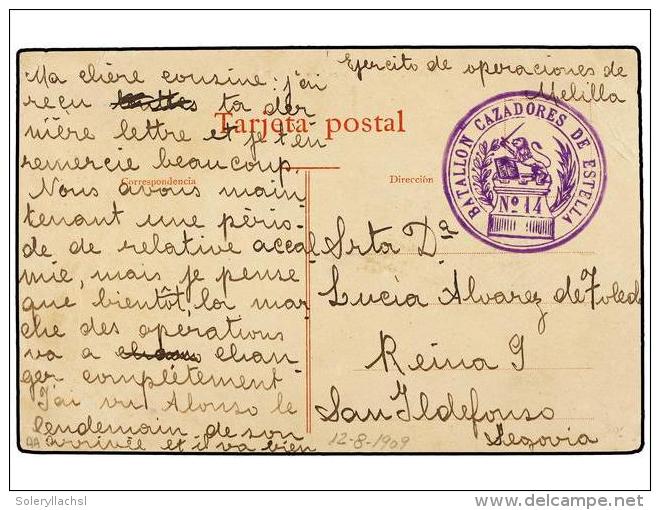 Ejercito de operaciones de
Melilla
Tarjeta postal
Correspondencia
Dirección
BATALLON CAZADORES DE ESTELLA
Nº 14
Ma chère cousine: j'ai
reçu ta der
nière lettre et je t'en
remercie beaucoup.
Nous avons main
tenant une pério
de de relative accal
mie, mais je pense
que bientôt, la mar
che des opérations
va a chan
ger complétement
J'ai vu Alonso le
lendemain de son
arrivée et il va bien
Srta Dª
Lucia Alvarez de Toledo
Reina 9
San Ildefonso
Segovia
12-8-1909
Soleryllach.sl
delcampe.net